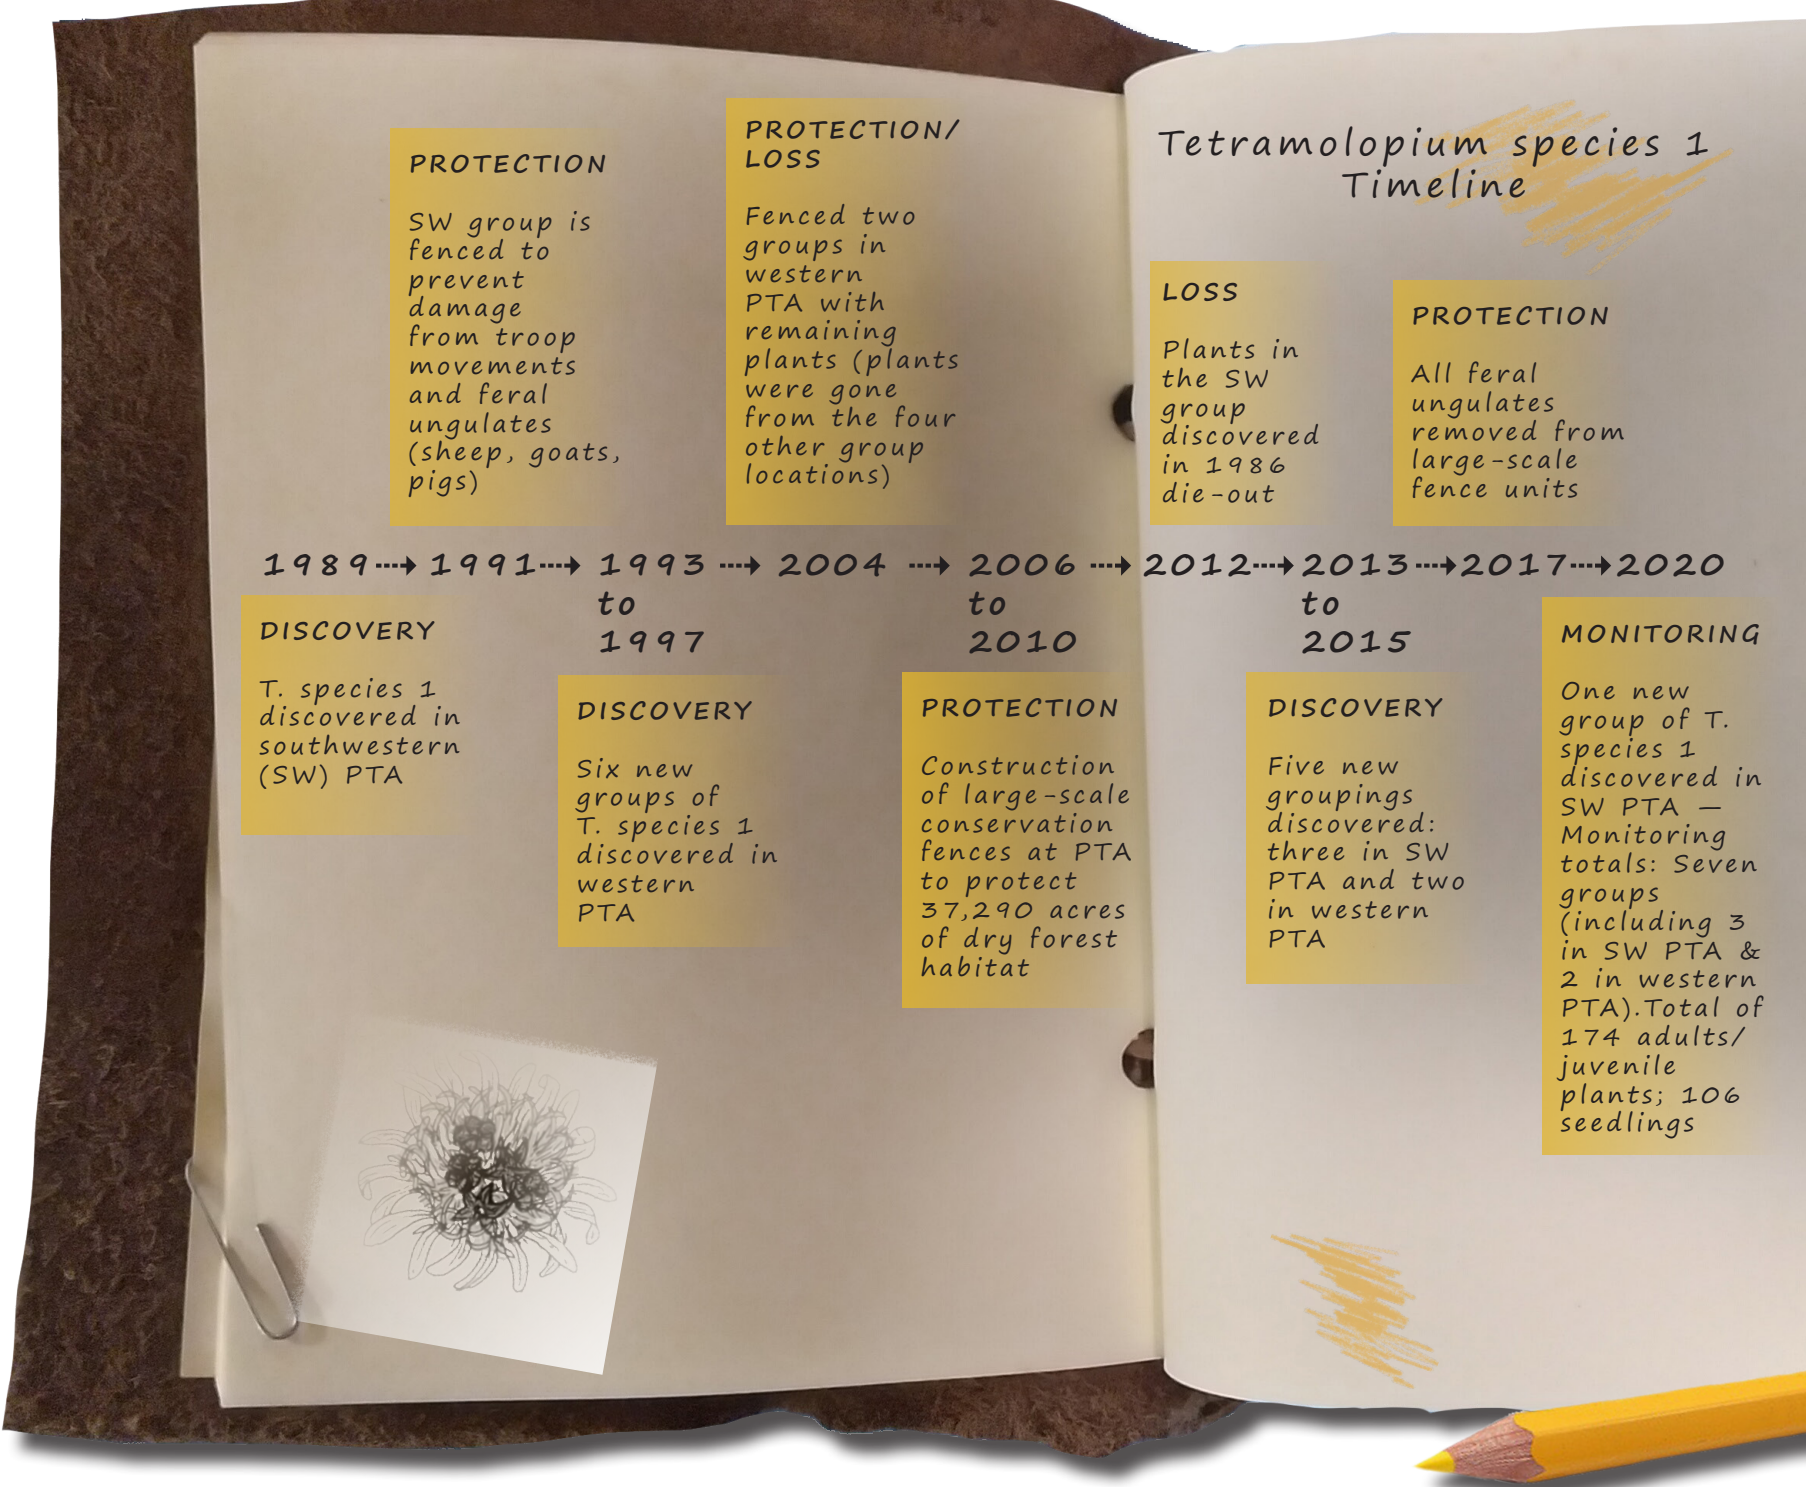 Tetramolopium species 1
Timeline
PROTECTION
SW group is
fenced to
prevent
damage
from troop
movements
and feral
ungulates
(sheep, goats,
pigs)
PROTECTION/
LOSS
Fenced two
groups in
western
PTA with
remaining
plants (plants
were gone
from the four
other group
locations)
LOSS
Plants in
the SW
group
discovered
in 1986
die-out
PROTECTION
All feral
ungulates
removed from
large-scale
fence units
1989 1991 1993 2004 2006 2012 2013 2017 2020
to to to
1997 2010 2015
DISCOVERY
T. species 1
discovered in
southwestern
(SW) PTA
DISCOVERY
Six new
groups of
T. species 1
discovered in
western
PTA
PROTECTION
Construction
of large-scale
conservation
fences at PTA
to protect
37,290 acres
of dry forest
habitat
DISCOVERY
Five new
groupings
discovered:
three in SW
PTA and two
in western
PTA
MONITORING
One new
group of T.
species 1
discovered in
SW PTA —
Monitoring
totals: Seven
groups
(including 3
in SW PTA &
2 in western
PTA).Total of
174 adults/
juvenile
plants; 106
seedlings